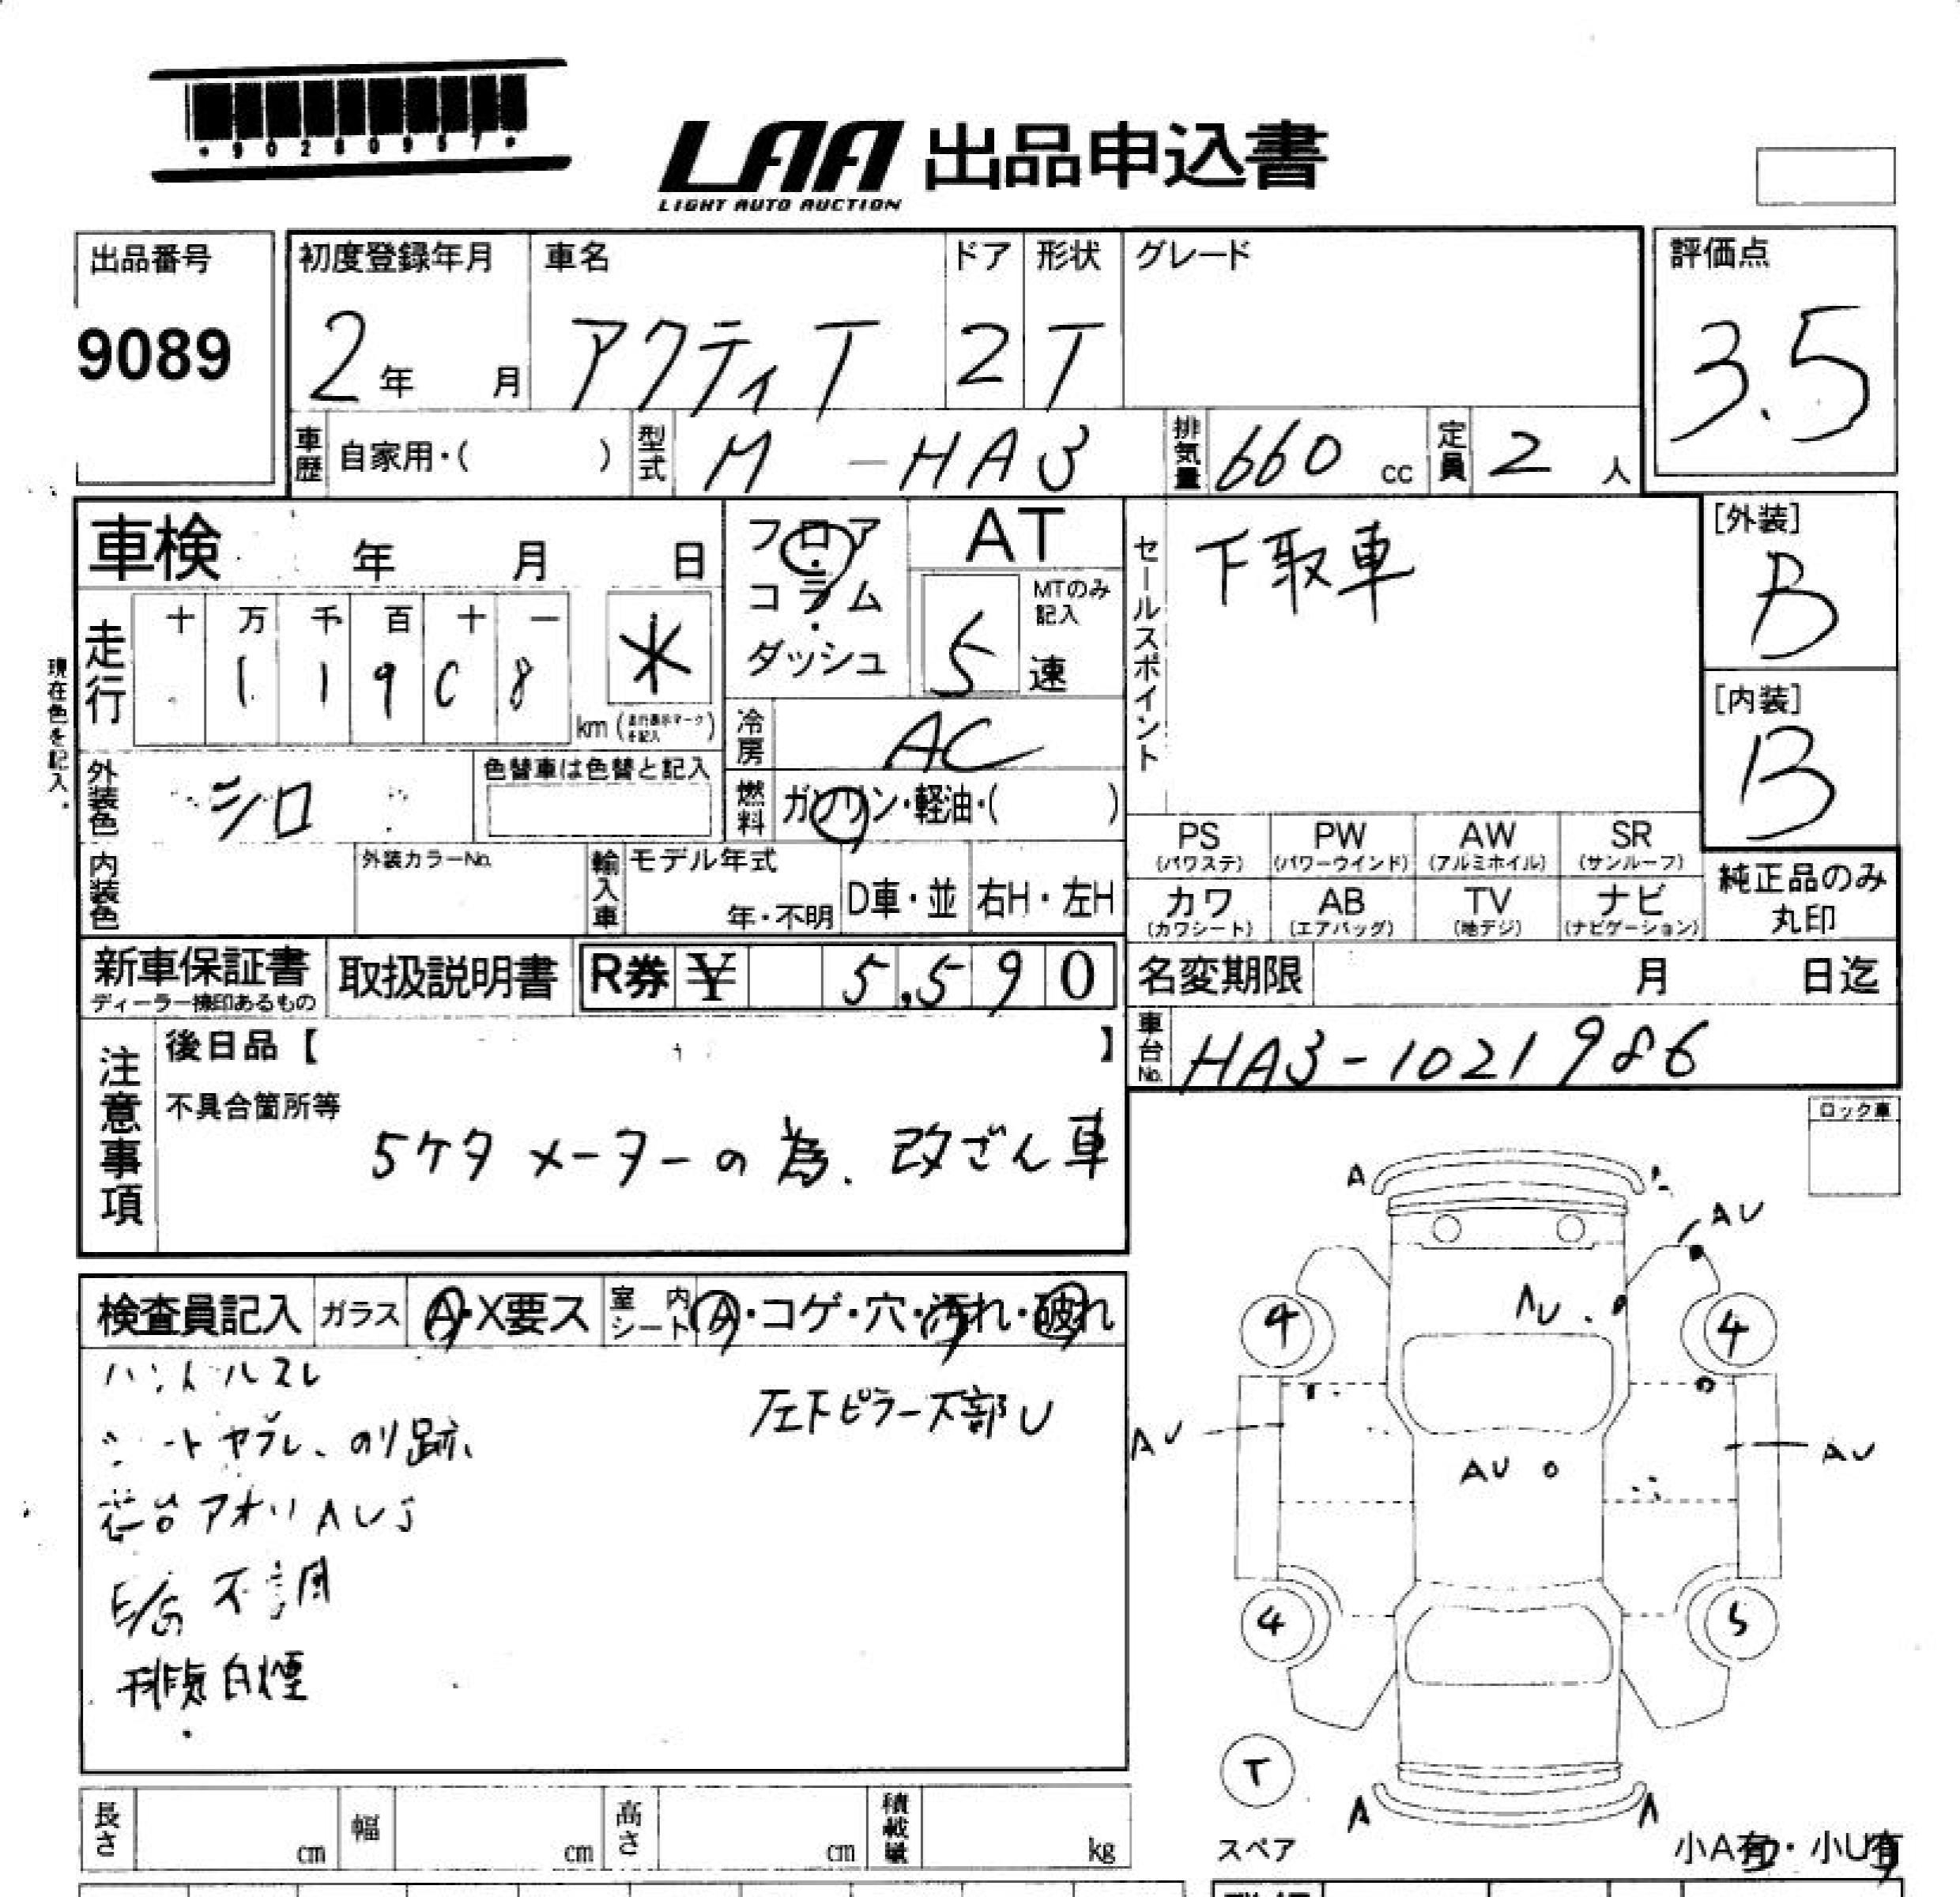 *90280957*
LAA 出品申込書
LIGHT AUTO AUCTION
出品番号 初度登録年月 車名 ドア 形状 グレード 評価点
9089 2年 月 アクティT 2 T 3.5
車歴 自家用・( ) 型式 M-HA3 排気量 660 cc 定員 2 人
車検 年 月 日 フロア AT セールスポイント 下取車 [外装]
コラム MTのみ記入 B
走行 十 万 千 百 十 一 ダッシュ 5 速
1 1 9 0 8 * km (走行表示マークを記入) 冷房 AC [内装]
現在色を記入。
外装色 シロ 色替車は色替と記入 燃料 ガソリン・軽油・( ) B
PS (パワステ) PW (パワーウインド) AW (アルミホイル) SR (サンルーフ)
内装色 外装カラーNo. 輸入車 モデル年式 年・不明 D車・並 右H・左H
カワ (カワシート) AB (エアバッグ) TV (地デジ) ナビ (ナビゲーション) 純正品のみ丸印
新車保証書 取扱説明書 R券 ¥ 5,590 名変期限 月 日迄
ディーラー捺印あるもの
注意事項 後日品【 】 車台No. HA3-1021986
不具合箇所等
5ケタメーターの為、改ざん車
ロック車
検査員記入 ガラス A・X要ス 室内シート A・コゲ・穴・汚れ・破れ
ハンドルスレ
シートヤブレ、のり跡、
左下ピラー下部U
荷台アオリAUS
E/G 不調
排気白煙
A
AU
AU
4 4
AU
AU
AU
4 5
T
スペア
A A
小A有・小U有
長さ cm 幅 cm 高さ cm 積載量 kg